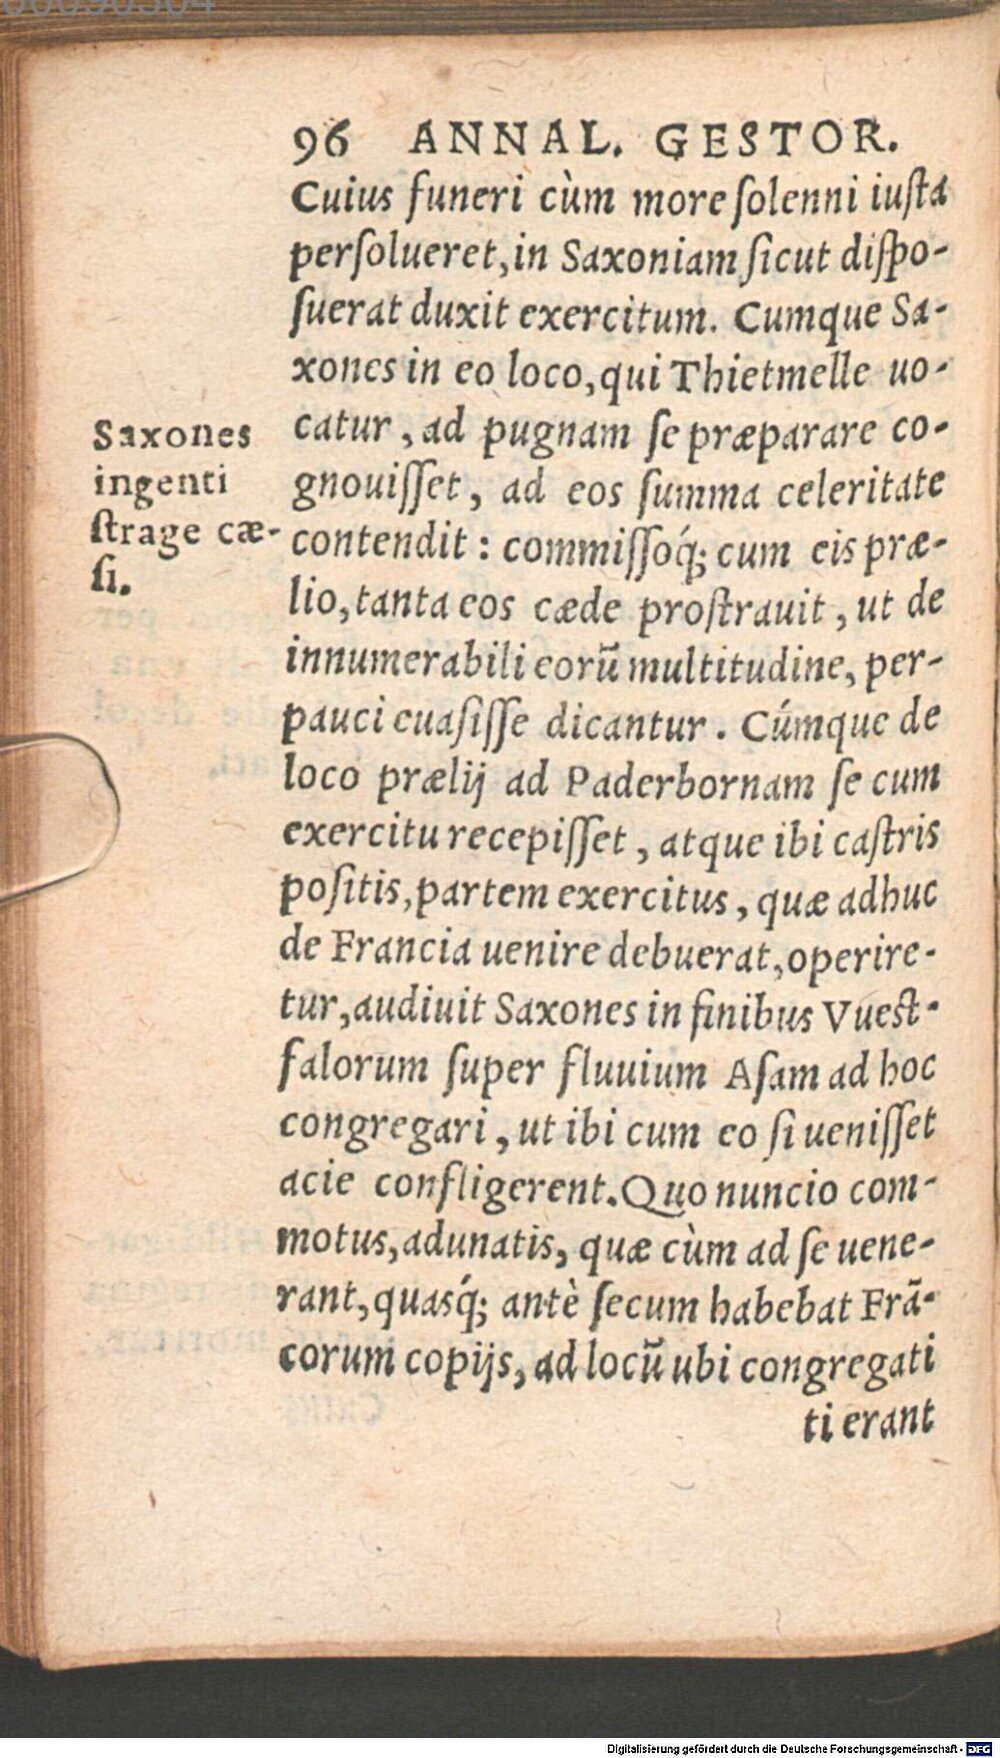 96 ANNAL. GESTOR.
Cuius funeri cùm more ſolenni iuſta
perſolueret, in Saxoniam ſicut diſpo-
ſuerat duxit exercitum. Cumque Sa-
xones in eo loco, qui Thietmelle uo-
catur, ad pugnam ſe præparare co-
gnouiſſet, ad eos ſumma celeritate
contendit: commiſſoq́; cum eis præ-
lio, tanta eos cæde proſtrauit, ut de
innumerabili eorũ multitudine, per-
pauci euaſiſſe dicantur. Cúmque de
loco prælij ad Paderbornam ſe cum
exercitu recepiſſet, atque ibi caſtris
poſitis, partem exercitus, quæ adhuc
de Francia uenire debuerat, operire-
tur, audiuit Saxones in finibus Vueſt-
falorum ſuper fluuium Aſam ad hoc
congregari, ut ibi cum eo ſi ueniſſet
acie confligerent. Quo nuncio com-
motus, adunatis, quæ cùm ad ſe uene-
rant, quasq́; antè ſecum habebat Frã-
corum copijs, ad locũ ubi congregati
ti erant
Saxones
ingenti
ſtrage cæ-
ſi.
Digitalisierung gefördert durch die Deutsche Forschungsgemeinschaft - DFG